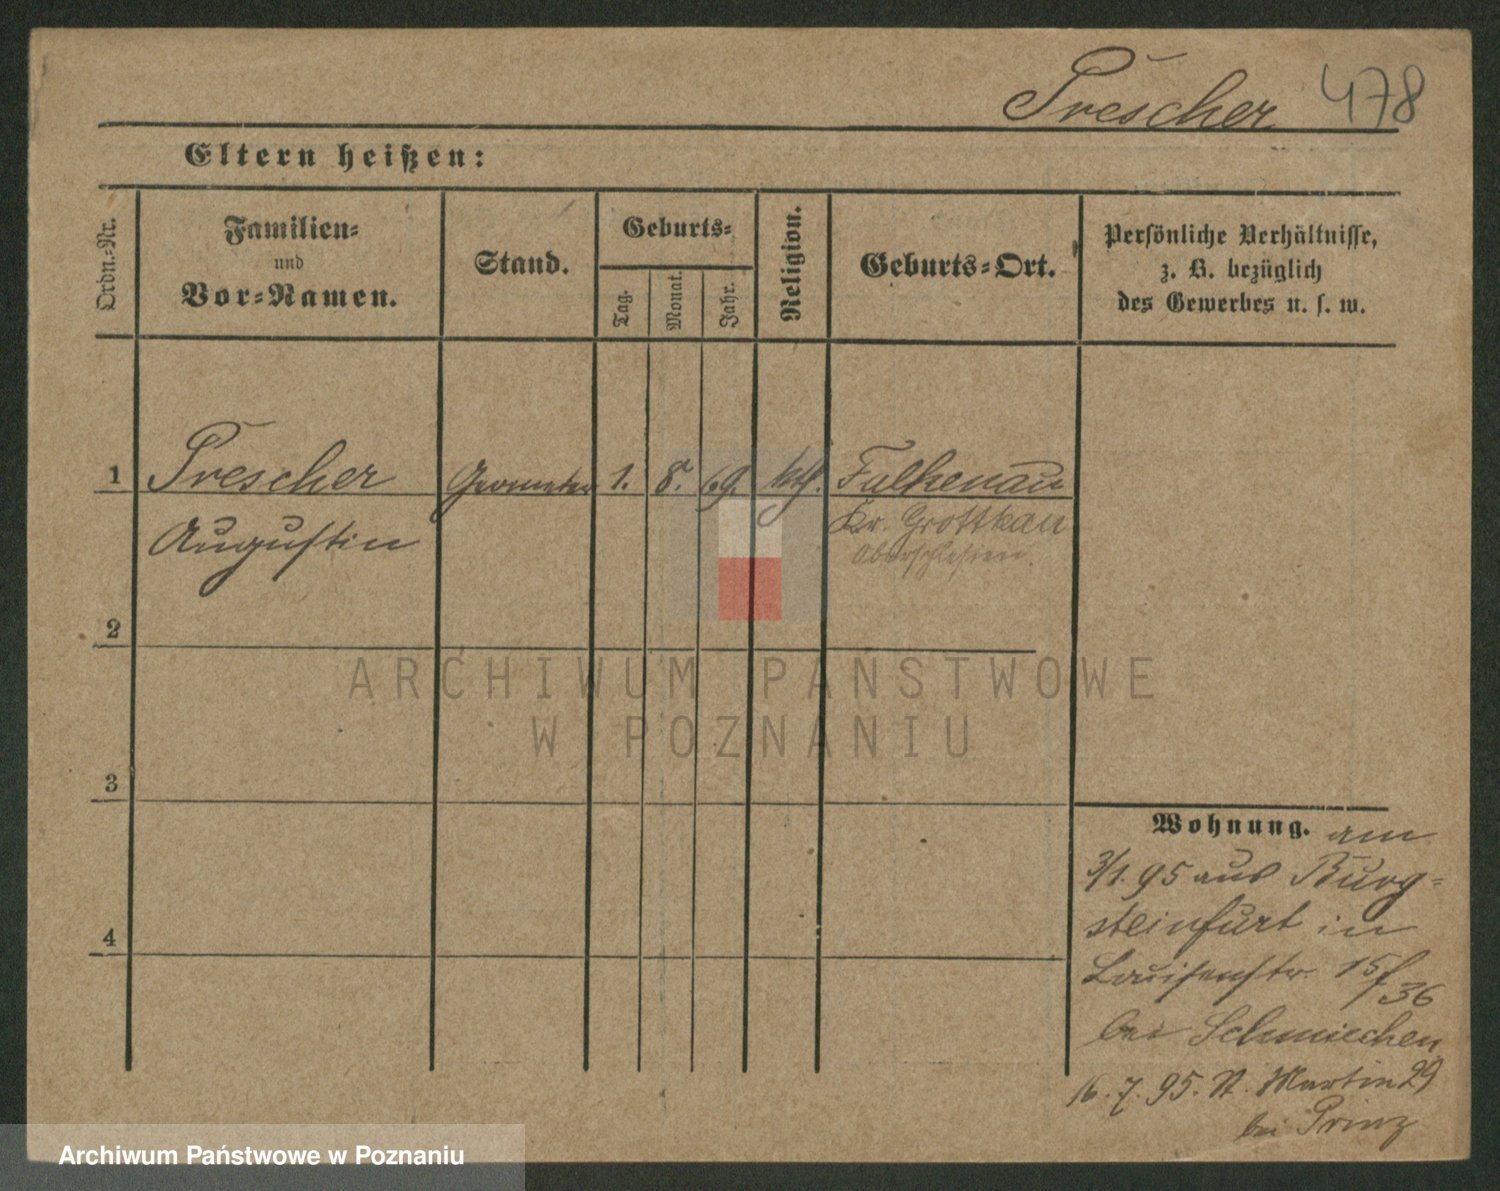 Prescher 478
Eltern heißen:
Ordn.-Nr.
Familien-
und
Vor-Namen.
Stand.
Geburts-
Tag.
Monat.
Jahr.
Religion.
Geburts-Ort.
Persönliche Verhältnisse,
z. B. bezüglich
des Gewerbes u. s. w.
1 Prescher Geometer 1. 8. 69. kth. Falkenau
Augustin Kr. Grottkau
Oberschlesien.
2
3
4
Wohnung. am
3/1. 95 aus Burg-
steinfurt in
Louisenstr. 15/36
bei Schmiechen
16. 7. 95. St. Martin 29
bei Prinz
ARCHIWUM PAŃSTWOWE
W POZNANIU
Archiwum Państwowe w Poznaniu